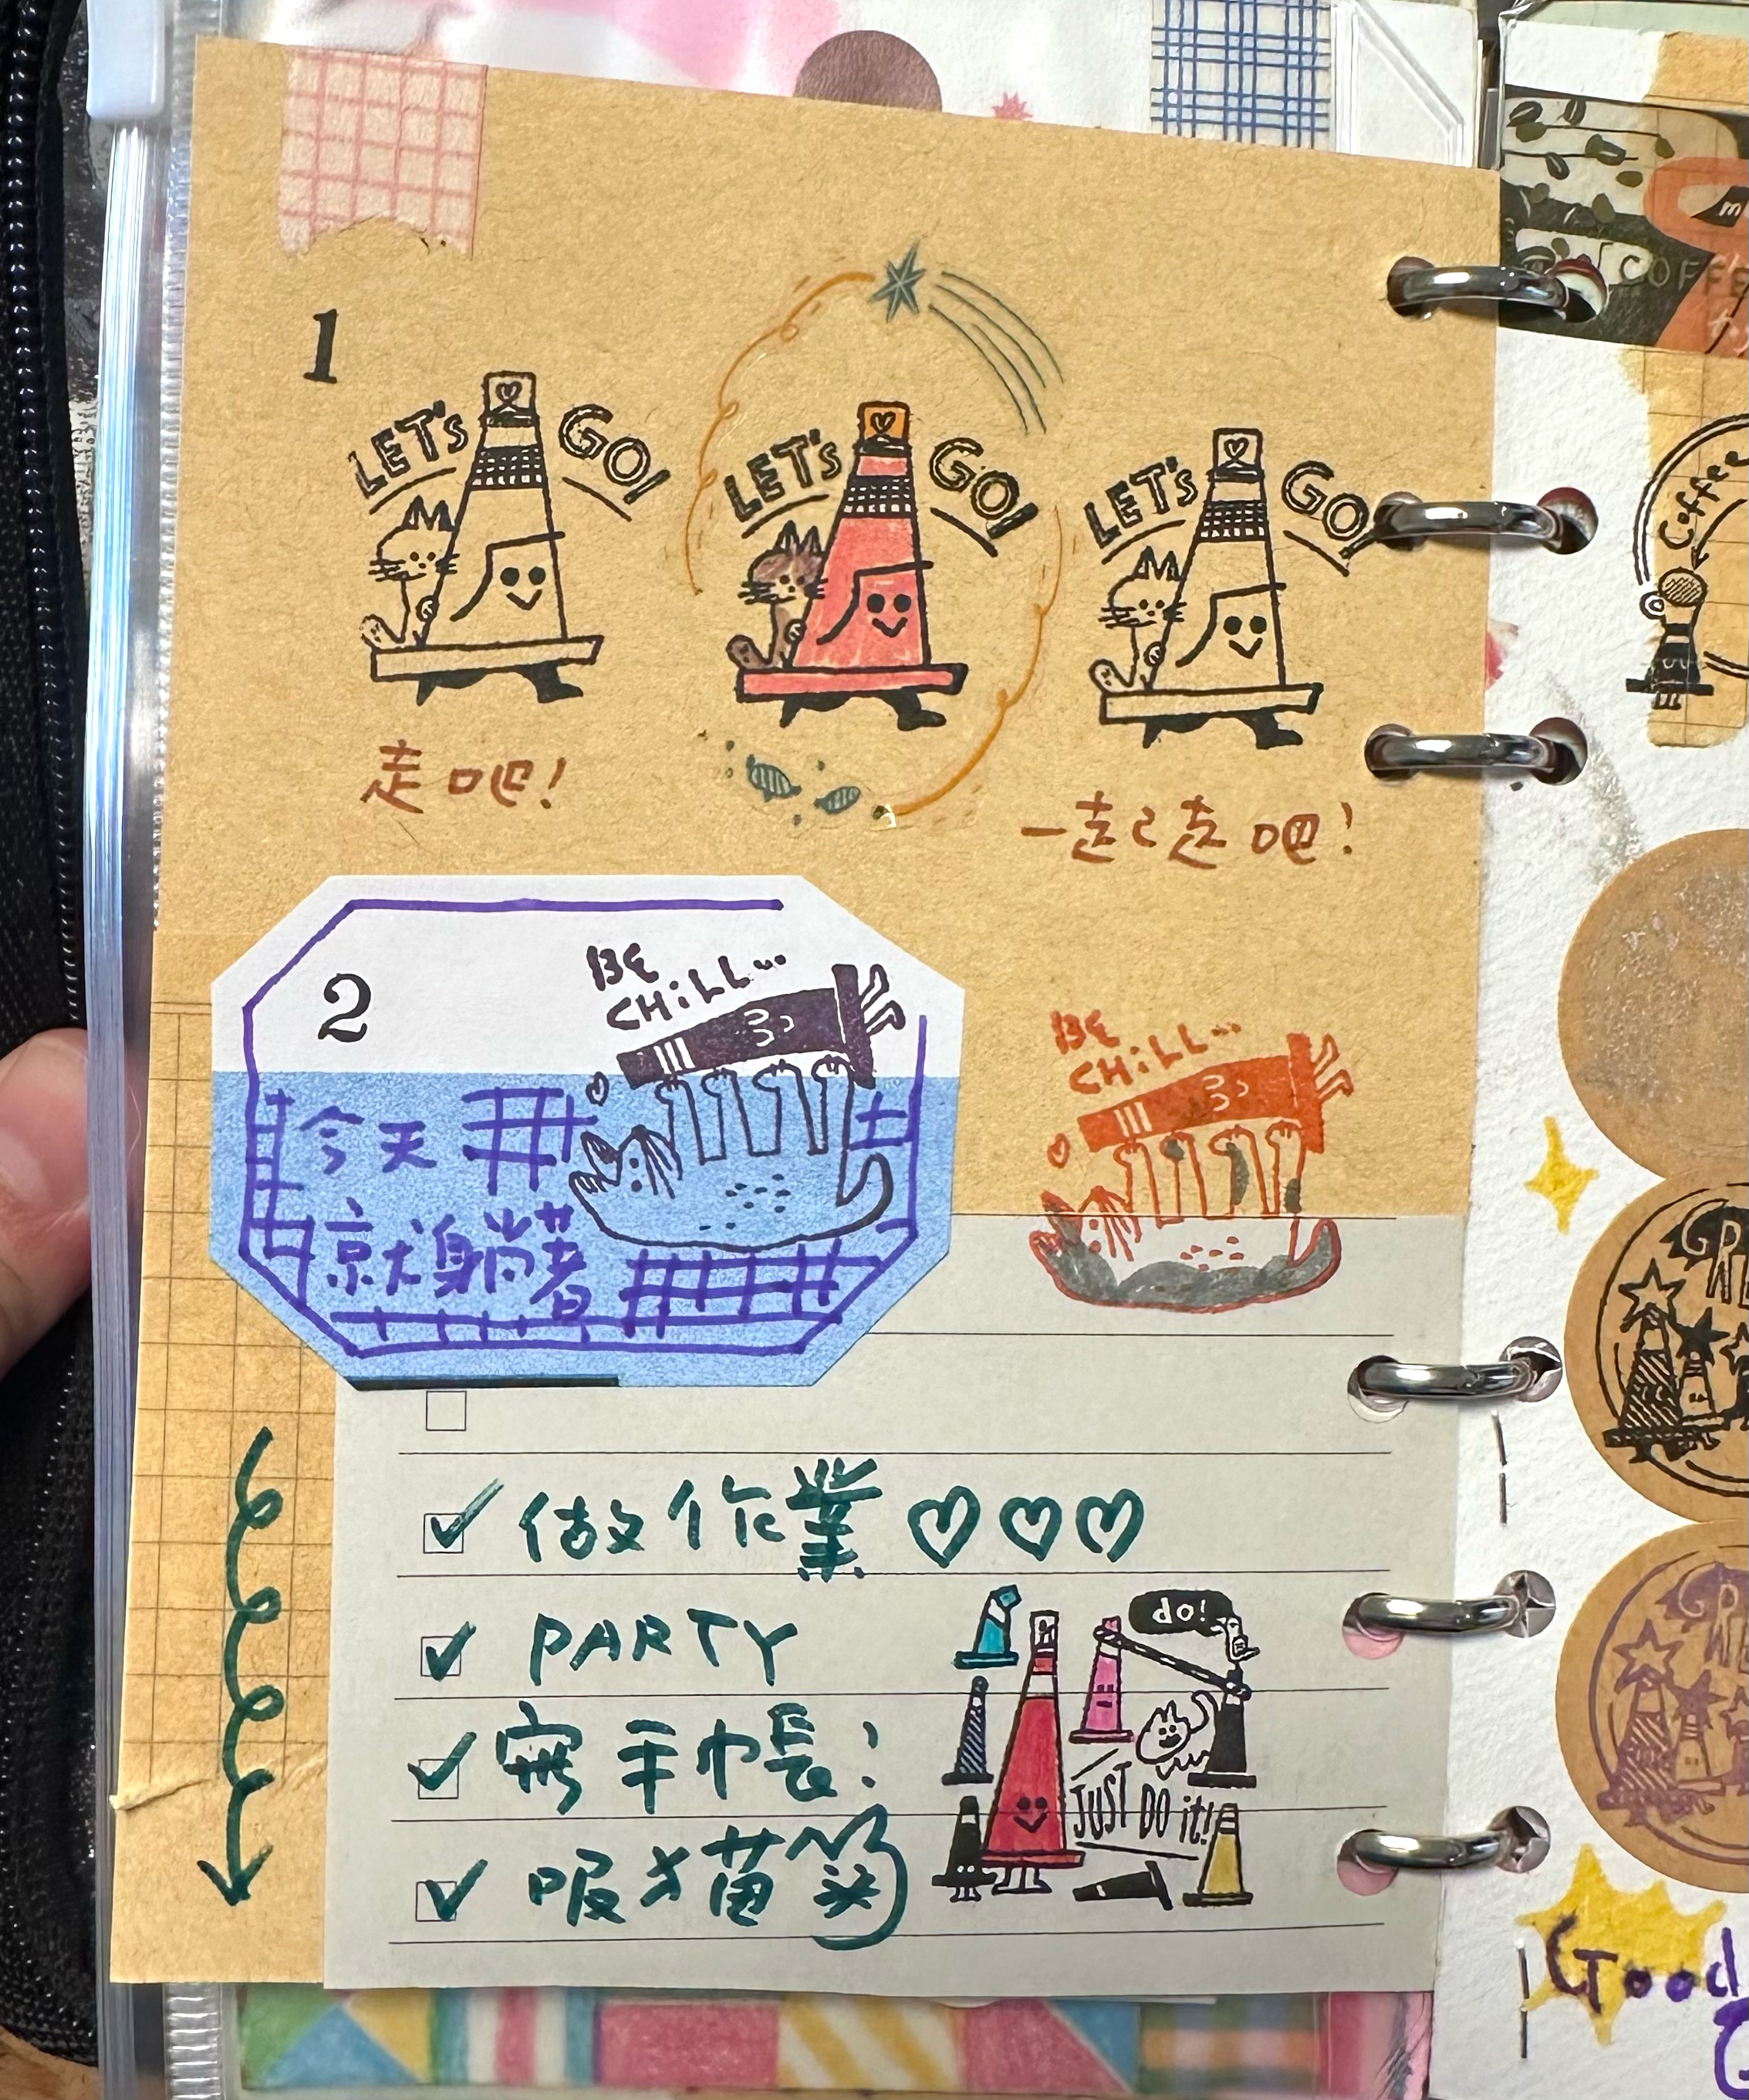 1
LET'S GO!
LET'S GO!
LET'S GO!
走吧!
一起走吧!
2
BE
CHILL...
今天
就躺著
BE
CHILL...
做作業♡♡♡
PARTY
寫手帳!
吸貓
do!
JUST DO it!
COFFEE
Coffee
Good